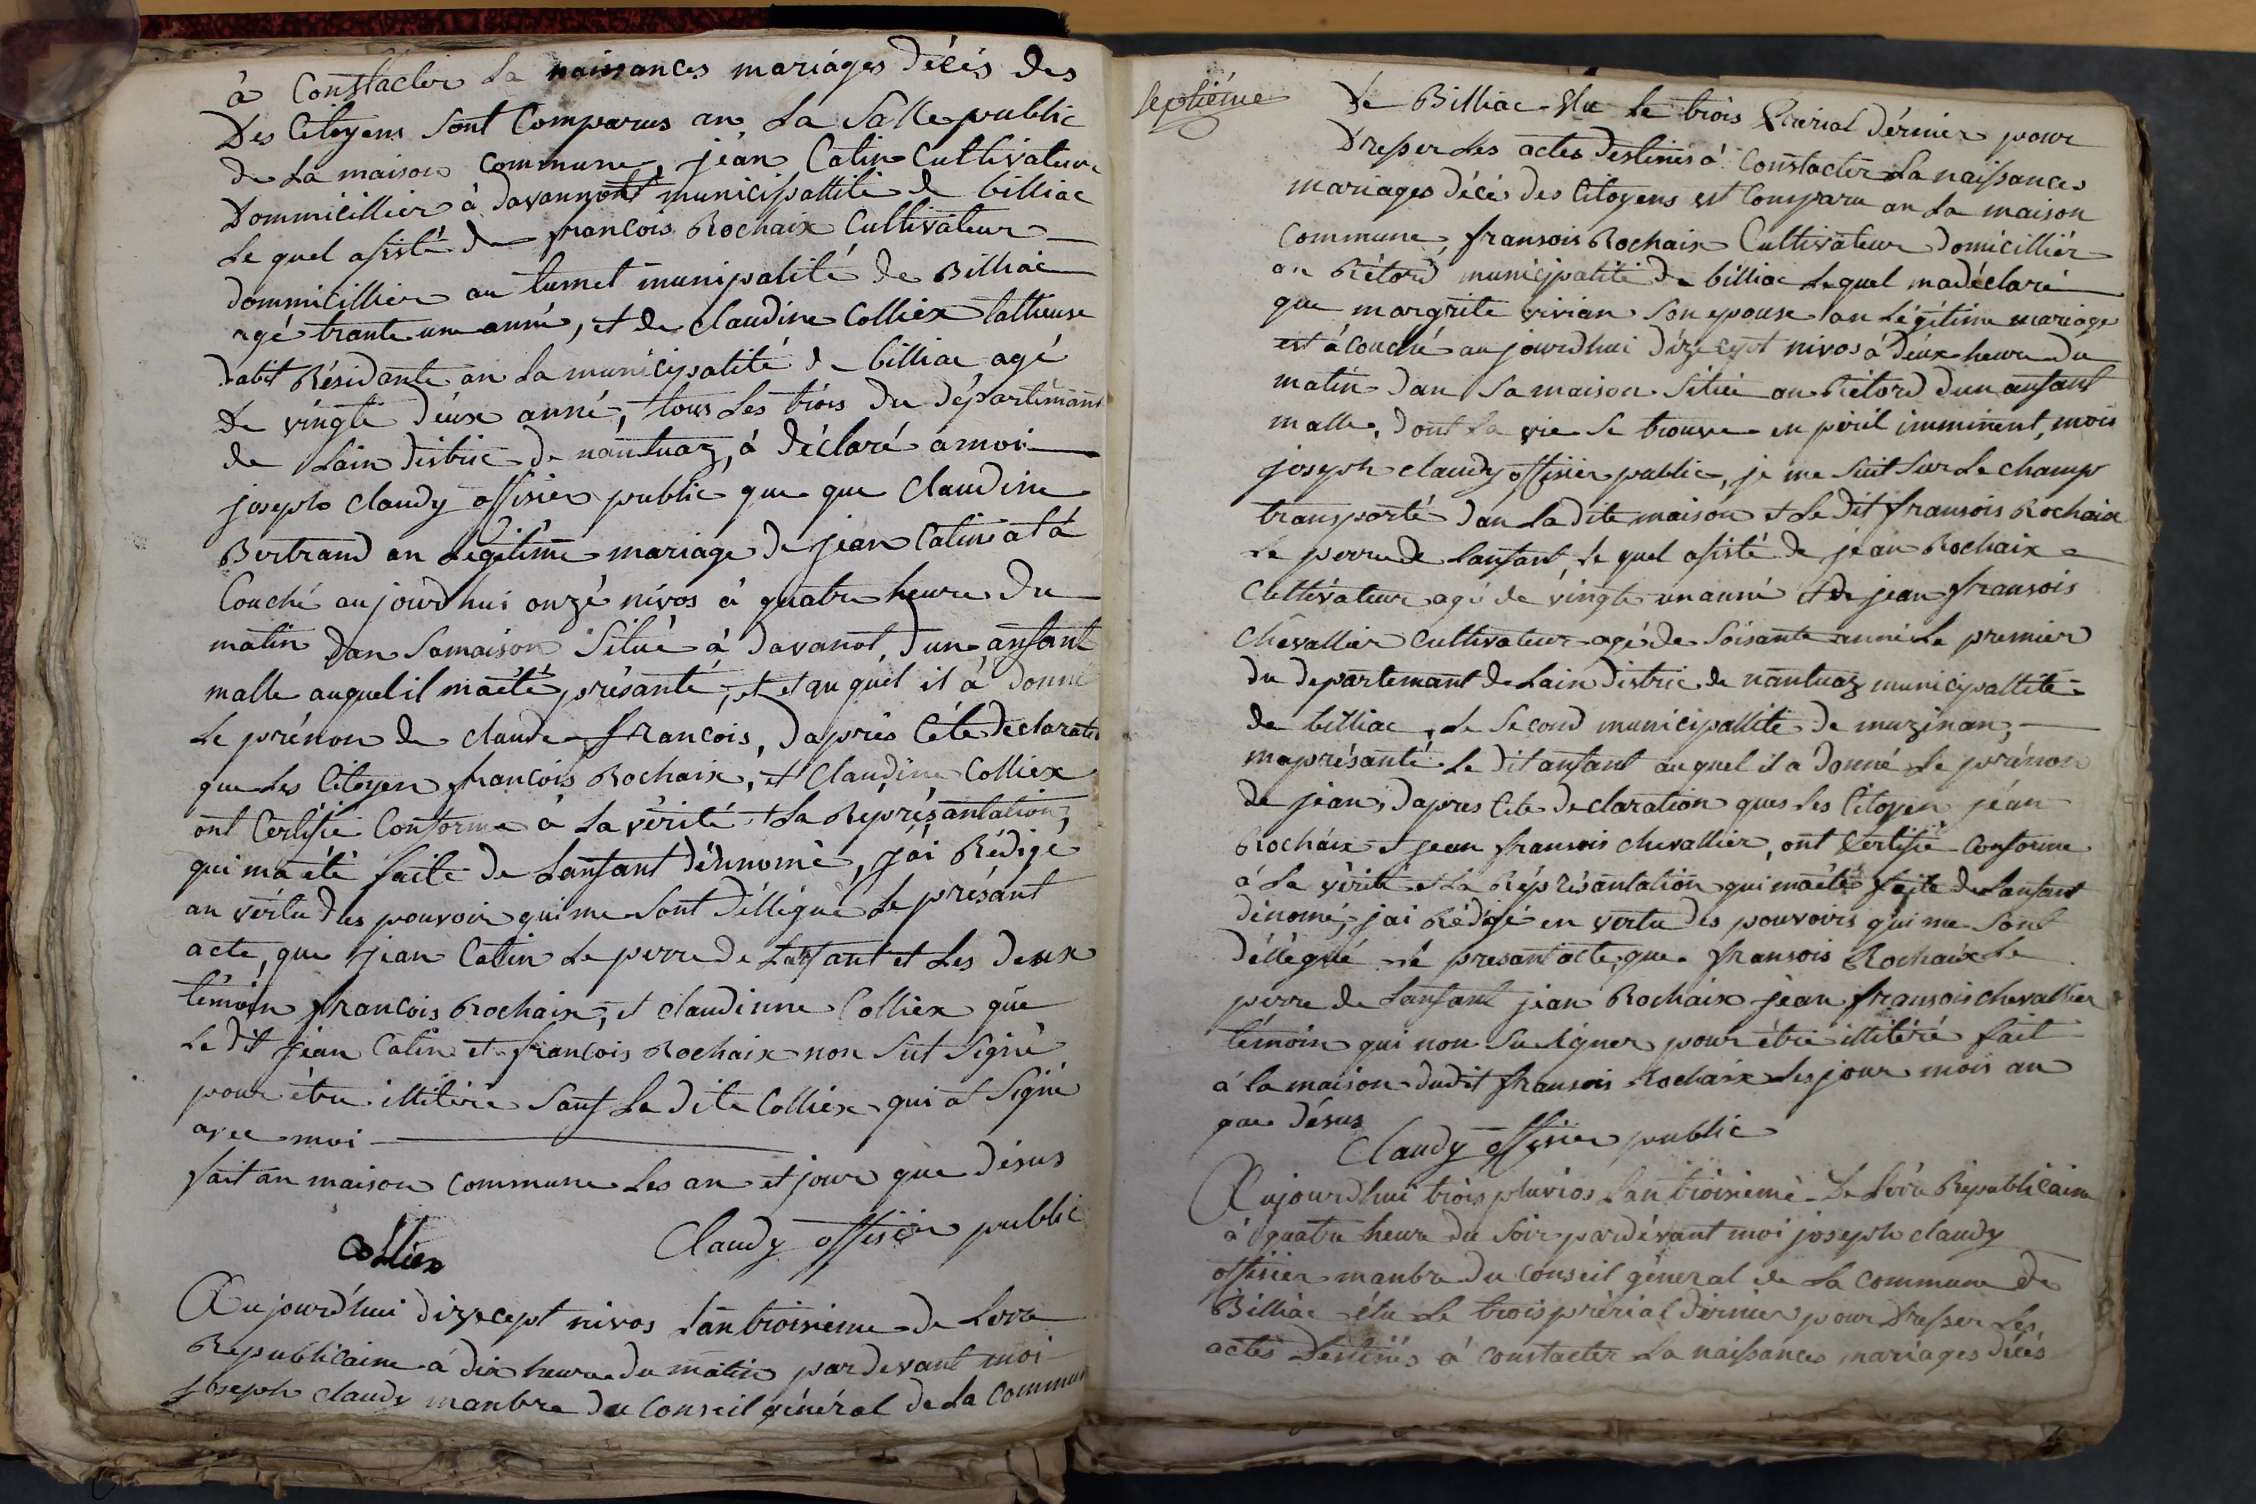 à Constacter La naissances mariages décés des
Des Citoyens sont Comparus an La Salle public
de La maison commune, jéan Catin Cultivateur
Dommicillier à davannont municipallité de billiac
Le quel asisté de françois Rochaix Cultivateur
dommicillier au tumet munipalité de Billiac
agé trante une anné, et de claudine Colliex
dabit Résidante an La municipalité de billiac agé
de vingte déux anné, tous Les trois du départémant
de Lain distric de nantuaz, à déclaré à moi
joseph claudy offisier public que que Claudine
Bertrand an Légitime mariage de jean Catin at à
Couché aujourdhui onzé nivos à quatre heure du
matin dan Samaison Situé à davanot, dun anfant
malle auquel il maété présanté, et et au quél il à donné
Le prénon de claude françois, daprés Céte declaration
que Les Citoyen françois Rochaix, et Claudine Colliex
ont Certifié Conforme à La vérité et La Représantation,
qui ma été faite de Lanfant dénnomé, jái Rédigé
an vértu des pouvoir qui me sont déllégué Le présant
acte, que jean Catin Le perre de Lanfant et Les deux
témoin françois Rochaix, et claudinne Colliex que
Le dit jean Catin et françois Rochaix non Sut Signé
pour étre illitéré Sauf La dite Colliex qui at Signé
avec moi
fait an maison commune Les an et jour que désus
Colliex Claudy offisier public
Aujourdhui dizsept nivos Lan troisieme de Lere
Republicaine à dix heure du matin pardevant moi
joseph claudy manbre du Conseil général de La Commune
septiéme
de Billiac élu Le trois prérial dérnier pour
Dresser Les actes destinés à Constacter La naissances
mariages décé des Citoyens est Comparu an La maison
commune, fransois Rochaix Cultivateur domicilliér
au Rétord municipalité de billiac Lequel madéclaré
que margrite vivian Son epouse an Légitime mariage
est à couché aujourdhui dizsept nivos à déux heure du
matin dan Sa maison Sitiée au Rétord dun anfant
malle, dont La vie Se trouve en péril imminent, mois
joseph claudy offisier public, je me Suit Sur Le champ
transporté dan La dite maison et Le dit fransois Rochaix
Le perre de Lanfant, Le quel asisté de jean Rochaix
Cultivateur agé de vingte un anné et de jean fransois
chévallier Cultivateur agé de Soisante anné Le premier
du departemant de Lain distric de nantuaz municipallité
de billiac, Le Second municipallité de muzinan,
maprésanté Le dit anfant au quel il a donné Le prénon
de jean, dapres Céte declaration ques Les Citoyen jéan
Rochaix et jean fransois chevallier, ont Certifié Conforme
à La vérité et La Réprésantation qui maété faite de Lanfant
dénomé, jai Rédigé en vertu des pouvoirs qui me Sont
déllégué Le presant acte, que fransois Rochaix Le
perre de Lanfant jean Rochaix jean fransois chevallier
témoin qui non Su Signer pour étre illitéré fait
à la maison dudit fransois Rochaix Les jour mois an
que désus
Claudy offisier public
Aujourdhui trois pluvios Lan troisiemé de Lére Républicaine
à quatre heure du Soir pardévant moi joseph claudy
offisier manbre du Conseil géneral de La commune de
Billiac élu Le trois prérial dérnier pour Dresser Les
actes déstinés à constacter La naissances mariages décés